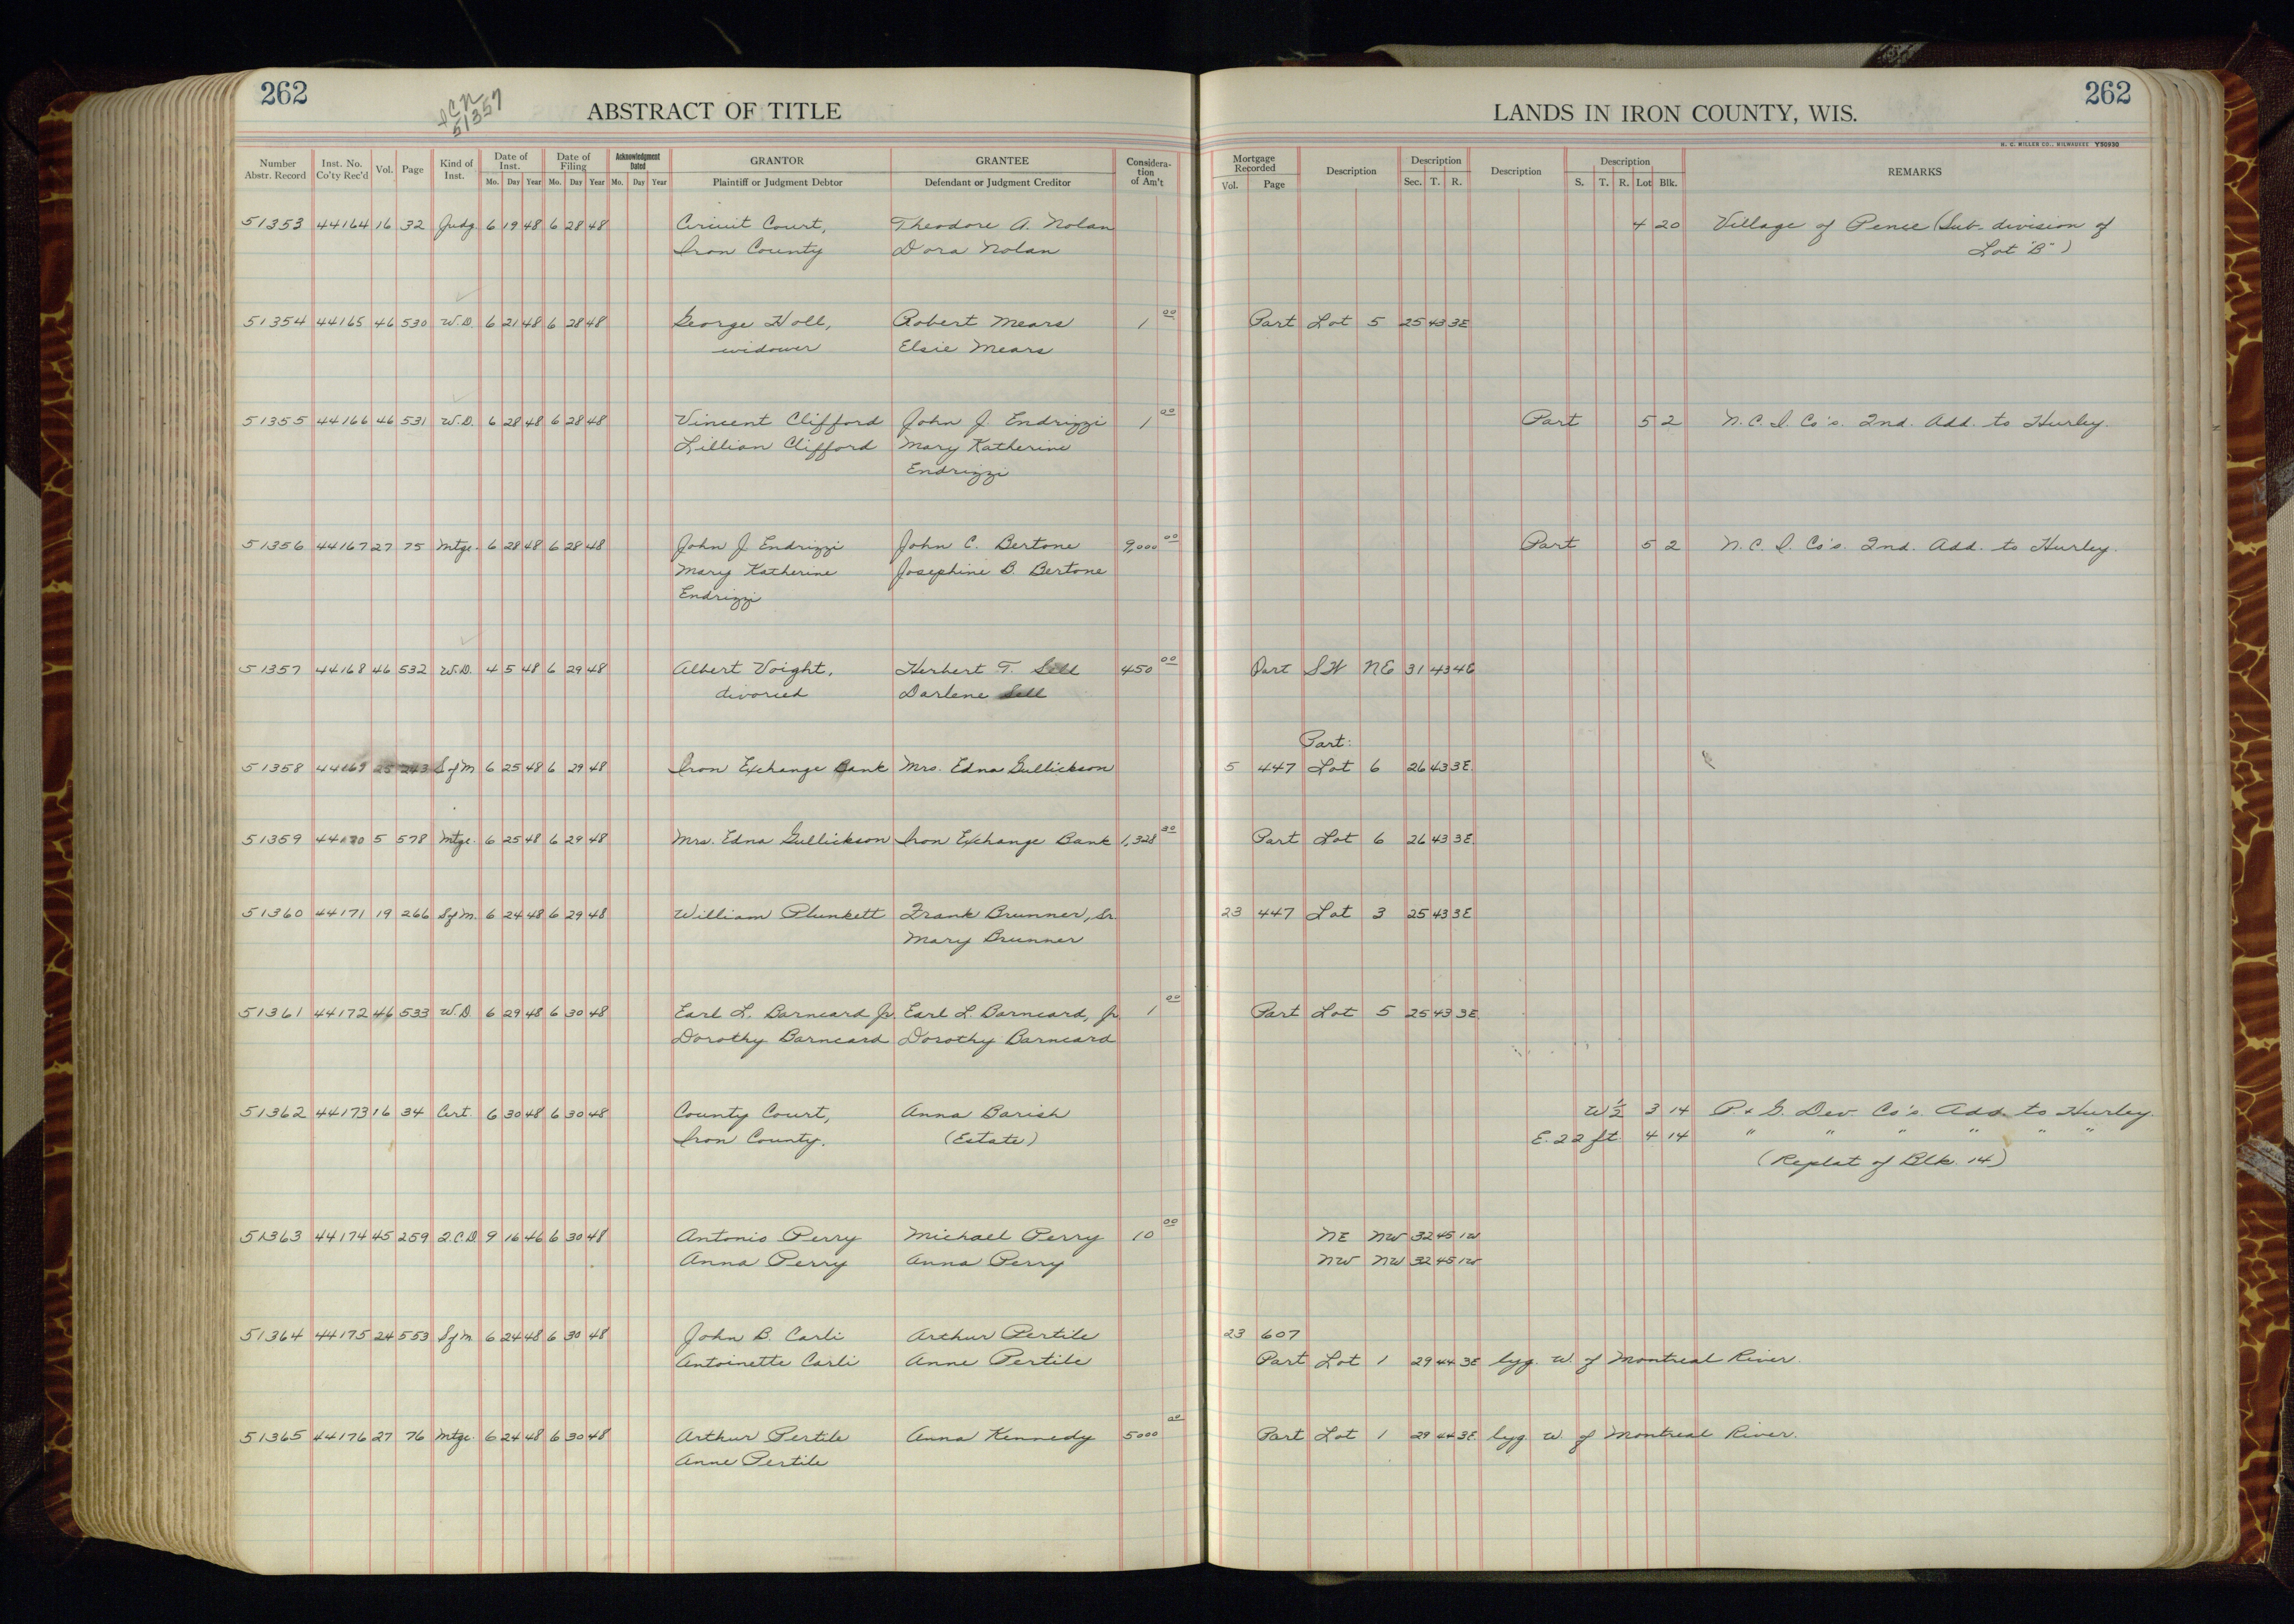 262
ICN
51357
ABSTRACT OF TITLE
LANDS IN IRON COUNTY, WIS.
262
H. C. MILLER CO., MILWAUKEE Y50930
Number Abstr. Record Inst. No. Co'ty Rec'd Vol. Page Kind of Inst. Date of Inst. Mo. Day Year Date of Filing Mo. Day Year Acknowledgment Dated Mo. Day Year GRANTOR Plaintiff or Judgment Debtor GRANTEE Defendant or Judgment Creditor Considera-tion of Am't Mortgage Recorded Vol. Page Description Description Sec. T. R. Description Description S. T. R. Lot Blk. REMARKS
51353 44164 16 32 Judg. 6 19 48 6 28 48 Circuit Court, Theodore A. Nolan 4 20 Village of Pence (Sub-division of
Iron County Dora Nolan Lot "B")
51354 44165 46 530 W.D. 6 21 48 6 28 48 George Holl, Robert Mears 1 00 Part Lot 5 25 43 3E
widower Elsie Mears
51355 44166 46 531 W.D. 6 28 48 6 28 48 Vincent Clifford John J. Endrizzi 1 00 Part 5 2 N.C.I. Co's. 2nd. Add. to Hurley.
Lillian Clifford Mary Katherine
Endrizzi
51356 44167 27 75 Mtge. 6 28 48 6 28 48 John J. Endrizzi John C. Bertone 9,000 00 Part 5 2 N.C.I. Co's. 2nd. Add. to Hurley.
Mary Katherine Josephine B. Bertone
Endrizzi
51357 44168 46 532 W.D. 4 5 48 6 29 48 Albert Voight, Herbert T. Sell 450 00 Part SW NE 31 43 4E
divorced Darlene Sell
Part:
51358 44169 25 243 SfM 6 25 48 6 29 48 Iron Exchange Bank Mrs. Edna Gullickson 5 447 Lot 6 26 43 3E.
51359 44170 5 578 Mtge. 6 25 48 6 29 48 Mrs. Edna Gullickson Iron Exchange Bank 1,328 30 Part Lot 6 26 43 3E.
51360 44171 19 266 SfM. 6 24 48 6 29 48 William Plunkett Frank Brunner, Sr. 23 447 Lot 3 25 43 3E
Mary Brunner
51361 44172 46 533 W.D. 6 29 48 6 30 48 Earl L. Barneard Jr. Earl L. Barneard, Jr. 1 00 Part Lot 5 25 43 3E.
Dorothy Barneard Dorothy Barneard
51362 44173 16 34 Cert. 6 30 48 6 30 48 County Court, Anna Barish W½ 3 14 P. & G. Dev. Co's. Add. to Hurley.
Iron County. (Estate) E. 22 ft. 4 14 " " " " " "
(Replat of Blk. 14)
51363 44174 45 259 Q.C.D. 9 16 46 6 30 48 Antonio Perry Michael Perry 10 00 NE NW 32 45 1W
Anna Perry Anna Perry NW NW 32 45 1W
51364 44175 24 553 SfM 6 24 48 6 30 48 John B. Carli Arthur Pertile 23 607
Antoinette Carli Anne Pertile Part Lot 1 29 44 3E lyg. W. of Montreal River.
51365 44176 27 76 Mtge. 6 24 48 6 30 48 Arthur Pertile Anna Kennedy 5000 00 Part Lot 1 29 44 3E lyg. W. of Montreal River.
Anne Pertile